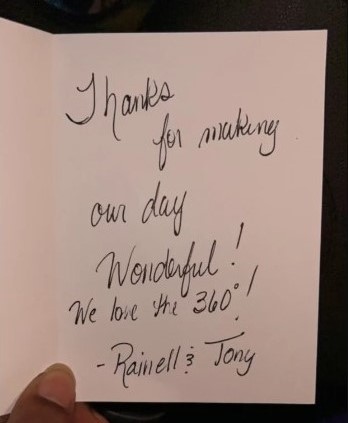 Thanks
for making
our day
Wonderful!
We love the 360°!
- Rainell & Tony